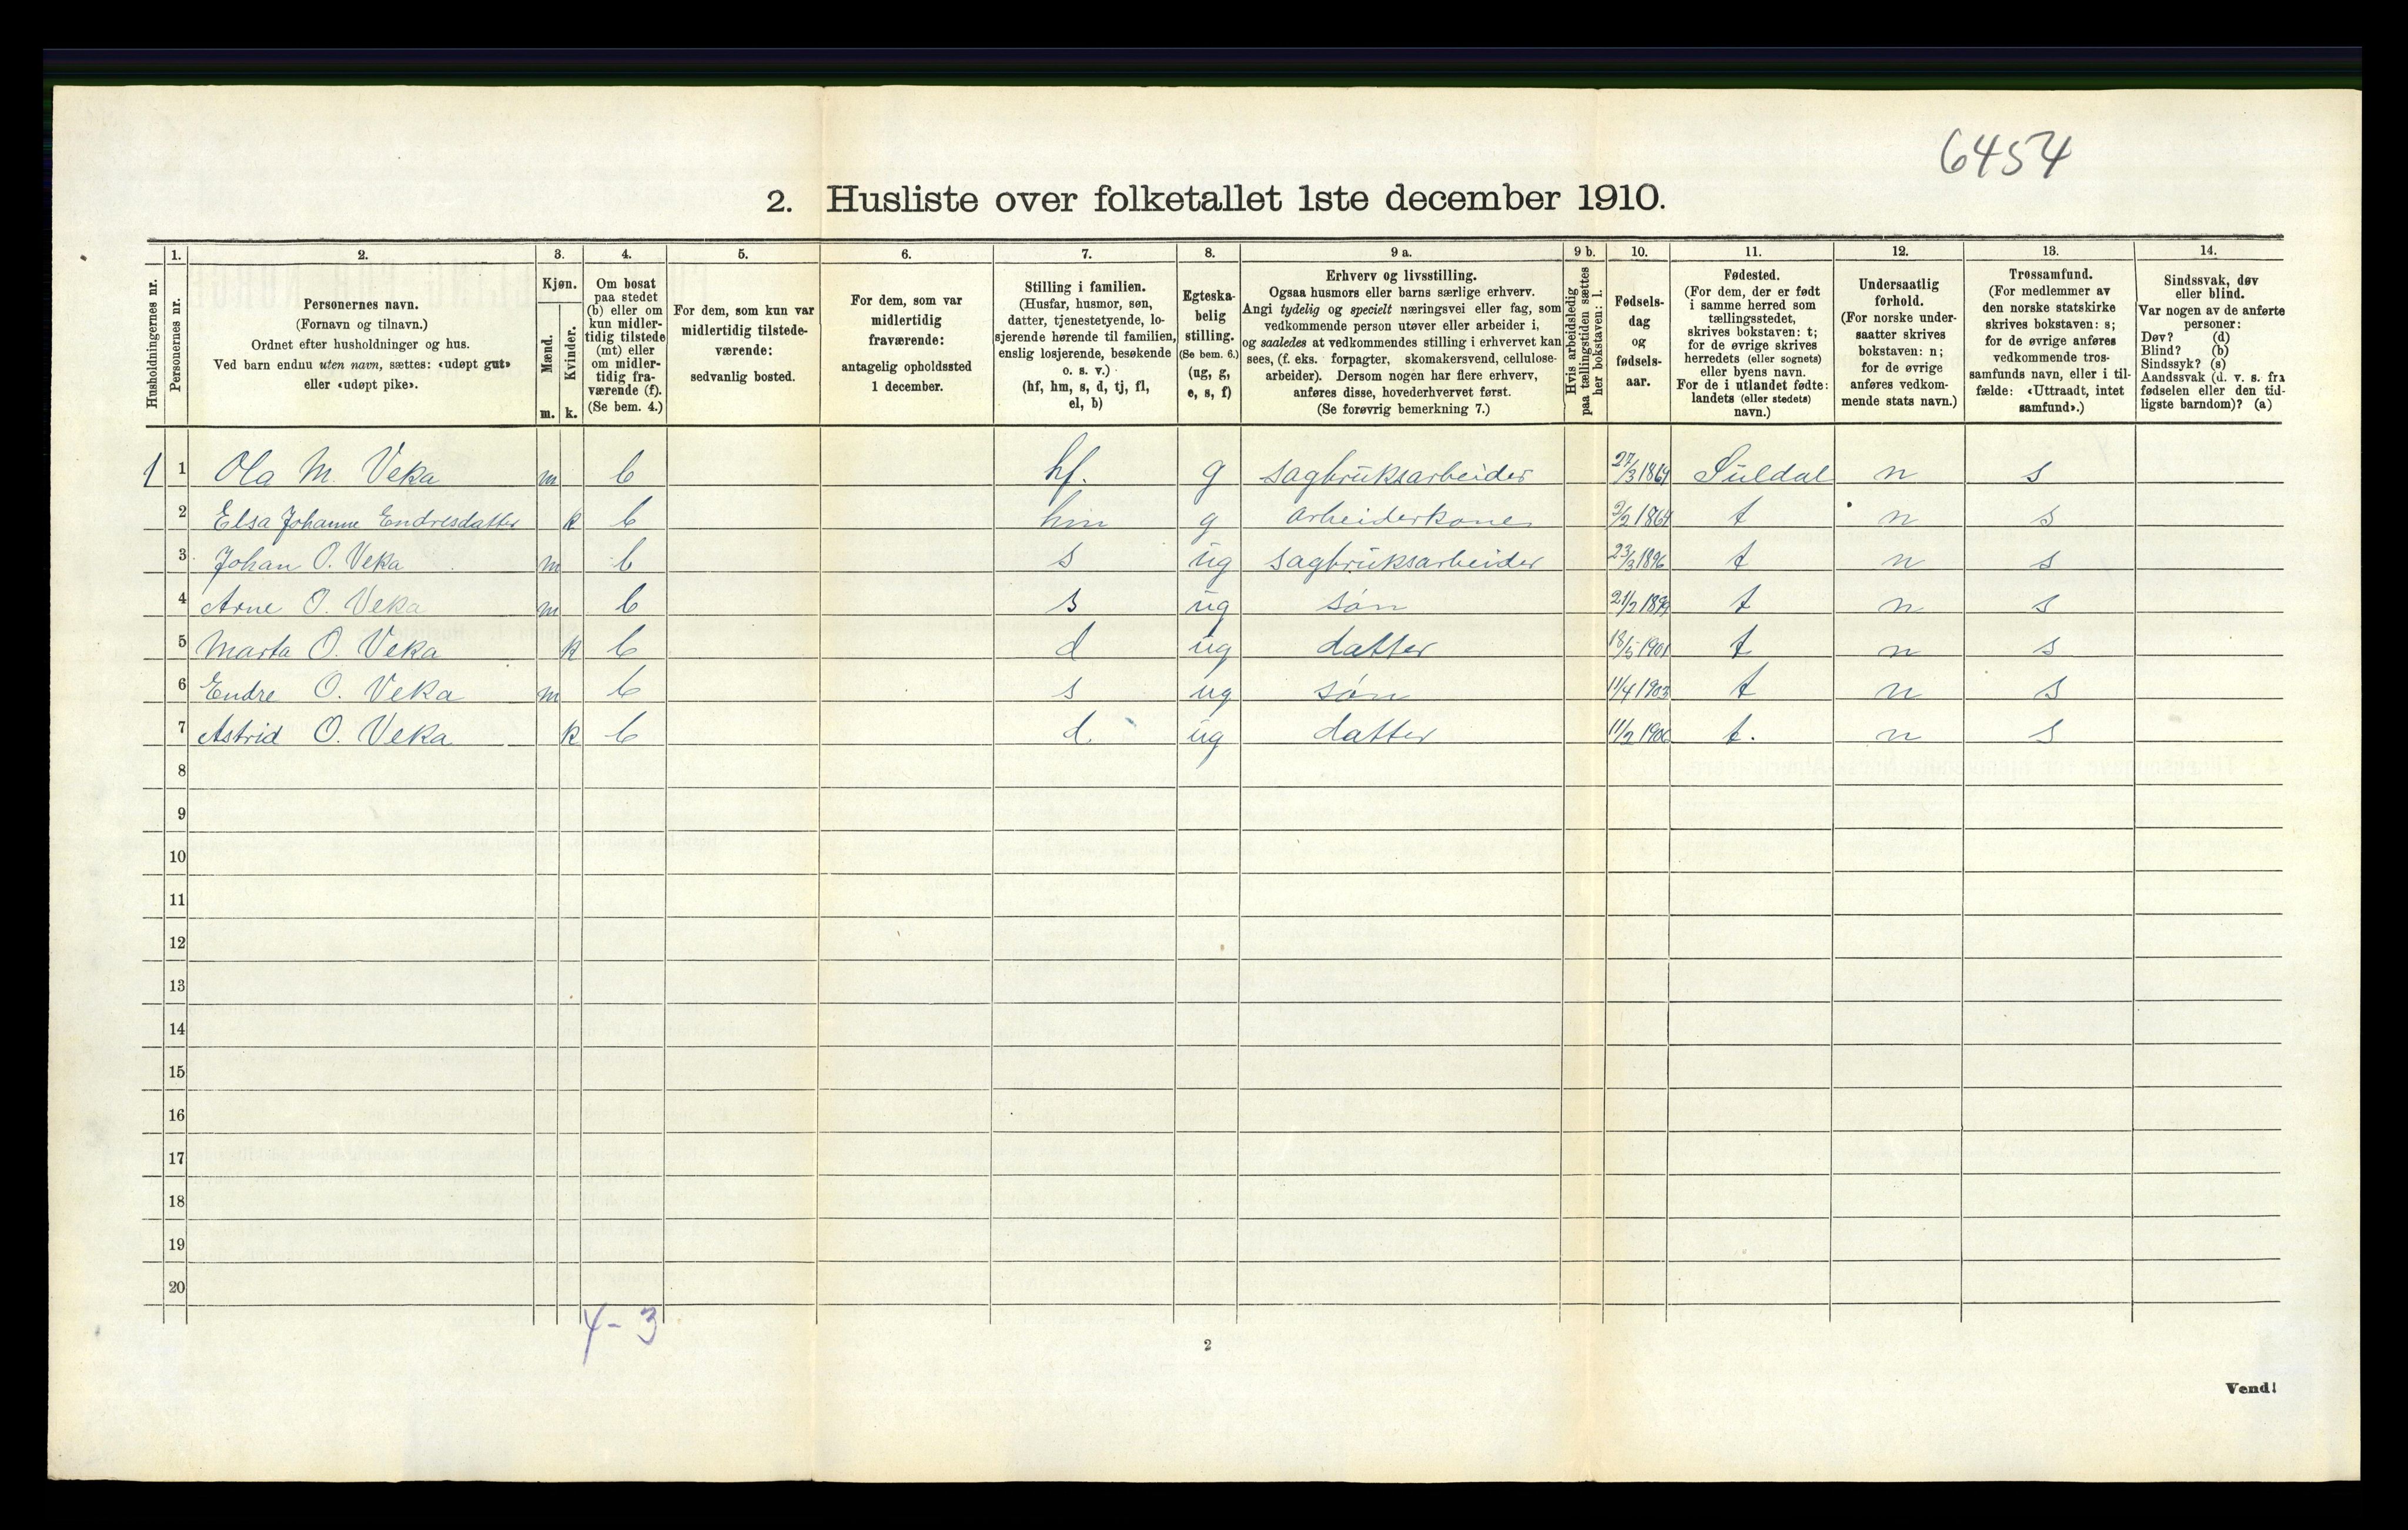 6454
2. Husliste over folketallet 1ste december 1910.
Husholdningernes nr.
1. Personernes nr.
2. Personernes navn.
(Fornavn og tilnavn.)
Ordnet efter husholdninger og hus.
Ved barn endnu uten navn, sættes: «udøpt gut»
eller «udøpt pike».
3. Kjøn.
Mænd. m.
Kvinder. k.
4. Om bosat
paa stedet
(b) eller om
kun midler-
tidig tilstede
(mt) eller
om midler-
tidig fra-
værende (f).
(Se bem. 4.)
5. For dem, som kun var
midlertidig tilstede-
værende:
sedvanlig bosted.
6. For dem, som var
midlertidig
fraværende:
antagelig opholdssted
1 december.
7. Stilling i familien.
(Husfar, husmor, søn,
datter, tjenestetyende, lo-
sjerende hørende til familien,
enslig losjerende, besøkende
o. s. v.)
(hf, hm, s, d, tj, fl,
el, b)
8. Egteska-
belig
stilling.
(Se bem. 6.)
(ug, g,
e, s, f)
9 a. Erhverv og livsstilling.
Ogsaa husmors eller barns særlige erhverv.
Angi tydelig og specielt næringsvei eller fag, som
vedkommende person utøver eller arbeider i,
og saaledes at vedkommendes stilling i erhvervet kan
sees, (f. eks. forpagter, skomakersvend, cellulose-
arbeider). Dersom nogen har flere erhverv,
anføres disse, hovederhvervet først.
(Se forøvrig bemerkning 7.)
9 b. Hvis arbeidsledig
paa tællingstiden sættes
her bokstaven: l.
10. Fødsels-
dag
og
fødsels-
aar.
11. Fødested.
(For dem, der er født
i samme herred som
tællingsstedet,
skrives bokstaven: t;
for de øvrige skrives
herredets (eller sognets)
eller byens navn.
For de i utlandet fødte:
landets (eller stedets)
navn.)
12. Undersaatlig
forhold.
(For norske under-
saatter skrives
bokstaven: n;
for de øvrige
anføres vedkom-
mende stats navn.)
13. Trossamfund.
(For medlemmer av
den norske statskirke
skrives bokstaven: s;
for de øvrige anføres
vedkommende tros-
samfunds navn, eller i til-
fælde: «Uttraadt, intet
samfund».)
14. Sindssvak, døv
eller blind.
Var nogen av de anførte
personer:
Døv? (d)
Blind? (b)
Sindssyk? (s)
Aandssvak (d. v. s. fra
fødselen eller den tid-
ligste barndom)? (a)
1 1 Ola M. Veka m b hf. g sagbruksarbeider 27/3 1864 Suldal n s
2 Elsa Johanne Endresdatter k b hm g arbeiderkone 1864 t n s
3 Johan O. Veka m b s ug sagbruksarbeider 23/3 1896 t n s
4 Arne O. Veka m b s ug søn 21/2 1899 t n s
5 Marta O. Veka k b d ug datter 18/5 1901 t n s
6 Endre O. Veka m b s ug søn 11/4 1903 t n s
7 Astrid O. Veka k b d. ug datter 11/2 1906 t. n s
8
9
10
11
12
13
14
15
16
17
18
19
20
4-3
2
Vend!